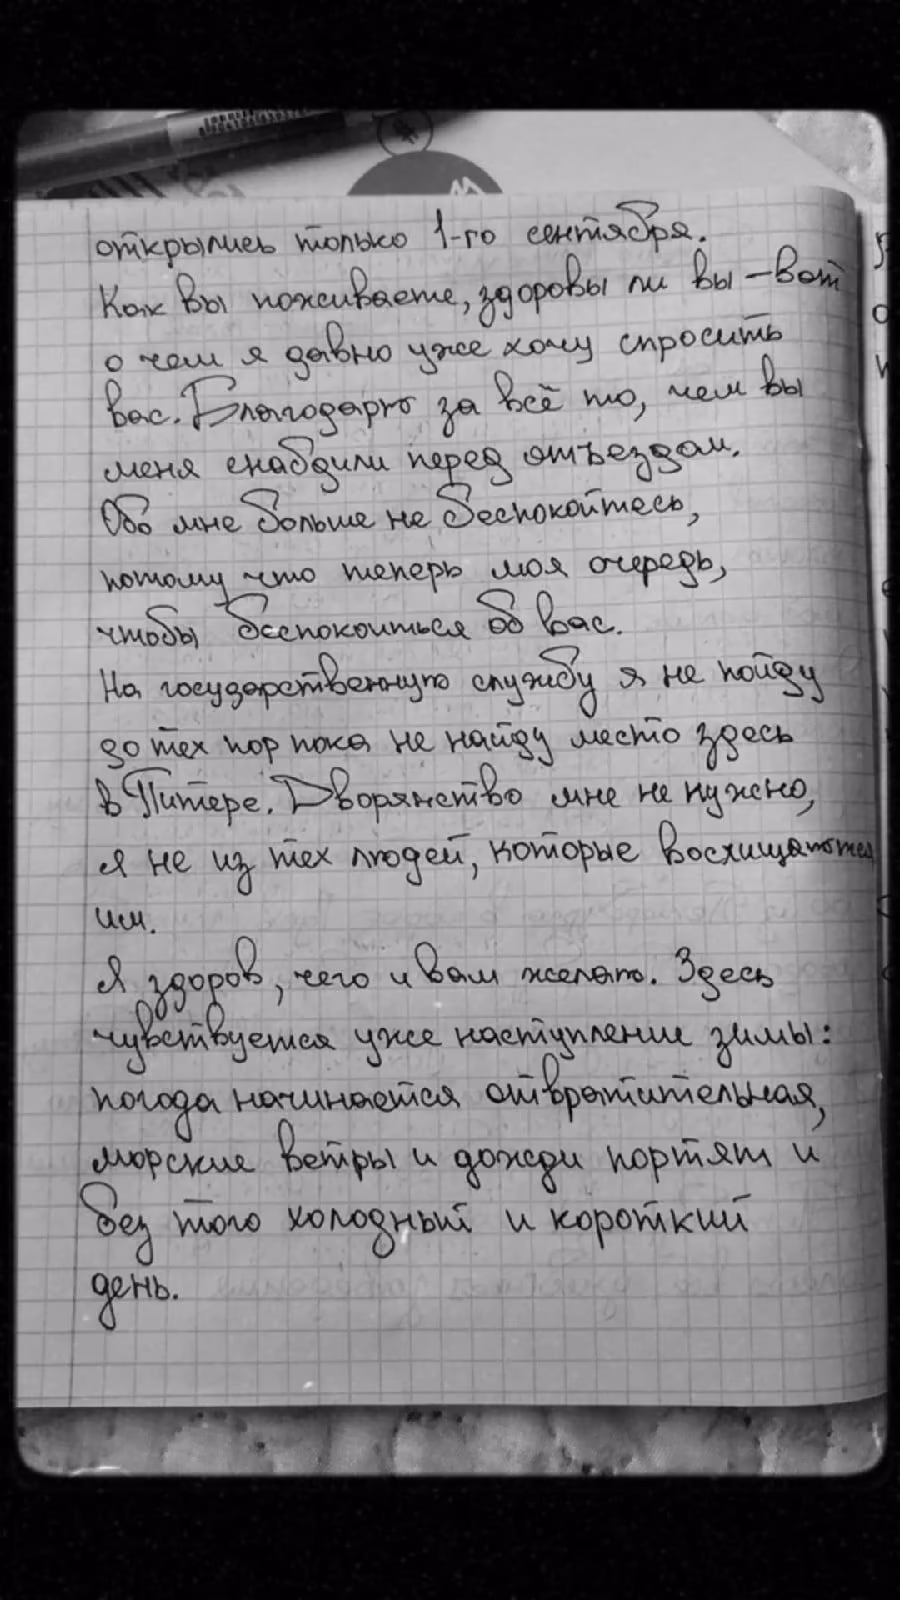 открылись только 1-го сентября.
Как вы поживаете, здоровы ли вы – вот
о чем я давно уже хочу спросить
вас. Благодарю за всё то, чем вы
меня снабдили перед отъездом.
Обо мне больше не беспокойтесь,
потому что теперь моя очередь,
чтобы беспокоиться об вас.
На государственную службу я не пойду
до тех пор пока не найду место здесь
в Питере. Дворянство мне не нужно,
я не из тех людей, которые восхищаются
им.
Я здоров, чего и вам желаю. Здесь
чувствуется уже наступление зимы:
погода начинается отвратительная,
морские ветры и дожди портят и
без того холодный и короткий
день.